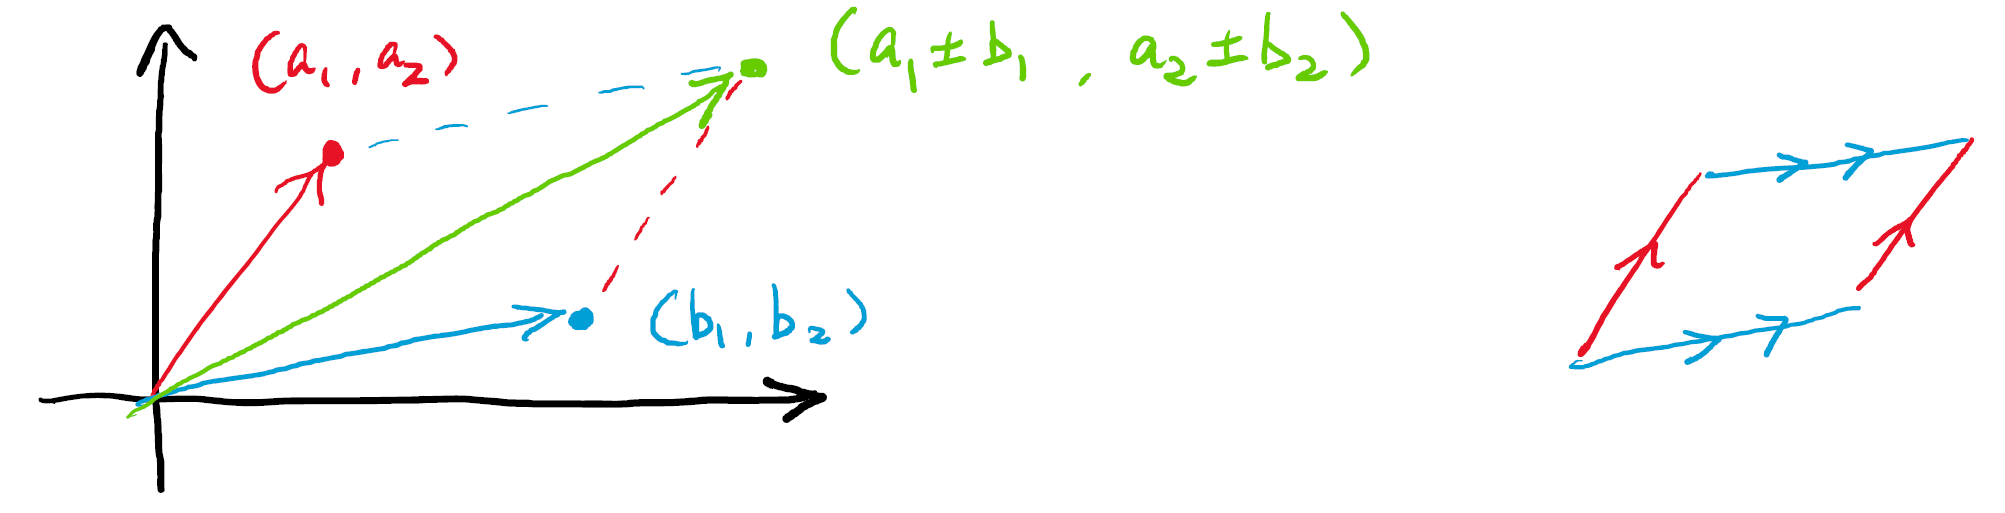 (a₁, a₂)
(a₁ ± b₁, a₂ ± b₂)
(b₁, b₂)